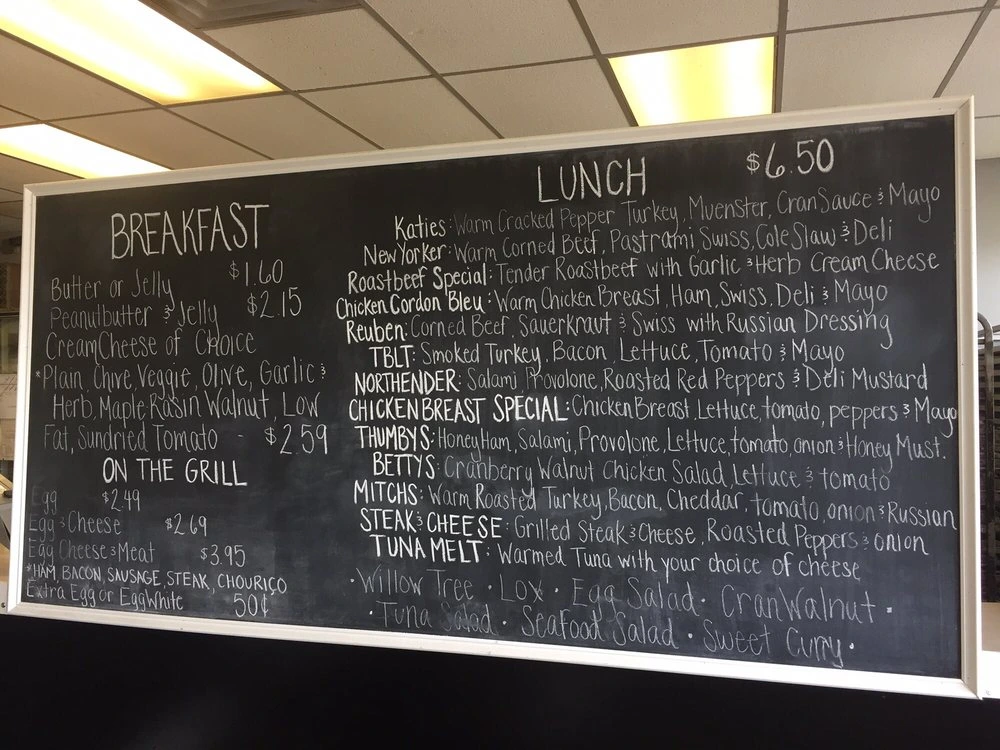 BREAKFAST
Butter or Jelly $1.60
Peanutbutter & Jelly $2.15
CreamCheese of Choice
*Plain, Chive, Veggie, Olive, Garlic &
Herb, Maple Rasin Walnut, Low
Fat, Sundried Tomato - $2.59
ON THE GRILL
Egg $2.49
Egg & Cheese $2.69
Egg Cheese & Meat $3.95
*HAM, BACON, SAUSAGE, STEAK, CHOURIÇO
Extra Egg or EggWhite 50¢
LUNCH $6.50
Katies: Warm Cracked Pepper Turkey, Muenster, CranSauce & Mayo
New Yorker: Warm Corned Beef, Pastrami Swiss, Cole Slaw & Deli
Roastbeef Special: Tender Roastbeef with Garlic & Herb Cream Cheese
Chicken Cordon Bleu: Warm Chicken Breast, Ham, Swiss, Deli & Mayo
Reuben: Corned Beef, Sauerkraut & Swiss with Russian Dressing
TBLT: Smoked Turkey, Bacon, Lettuce, Tomato & Mayo
NORTHENDER: Salami, Provolone, Roasted Red Peppers & Deli Mustard
CHICKEN BREAST SPECIAL: Chicken Breast, Lettuce, tomato, peppers & Mayo
THUMBYS: Honey Ham, Salami, Provolone, Lettuce, tomato, onion & Honey Must.
BETTYS: Cranberry Walnut Chicken Salad, Lettuce & tomato
MITCHS: Warm Roasted Turkey, Bacon, Cheddar, tomato, onion & Russian
STEAK & CHEESE: Grilled Steak & Cheese, Roasted Peppers & onion
TUNA MELT: Warmed Tuna with your choice of cheese
• Willow Tree • Lox • Egg Salad • CranWalnut •
• Tuna Salad • Seafood Salad • Sweet Curry •